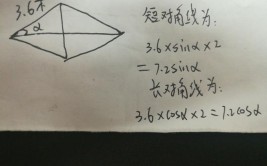 3.6米
α
短对角线为:
3.6×sinα×2
=7.2sinα
长对角线为:
3.6×cosα×2=7.2cosα